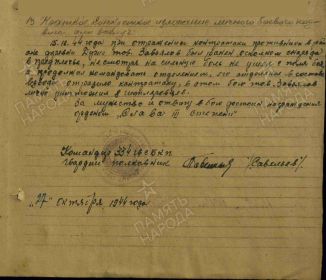 В. Краткое, конкретное изложение личного боевого подвига или заслуг
15.10.44 года при отражении контратаки противника в районе деревни тов. Завьялов был ранен осколком снаряда
в предплечье, не смотря на сильную боль не ушел с поля боя,
а продолжал командовать отделением, его отделение в составе
взвода отразило контратаку, в этом бою тов. Завьялов
лично уничтожил 8 гитлеровцев.
За мужество и отвагу в бою достоин награждения
орденом "Слава III степени"
Командир 334 гв
гвардии полковник /Савельев/.
"27" октября 1944 года
ПАМЯТЬ НАРОДА